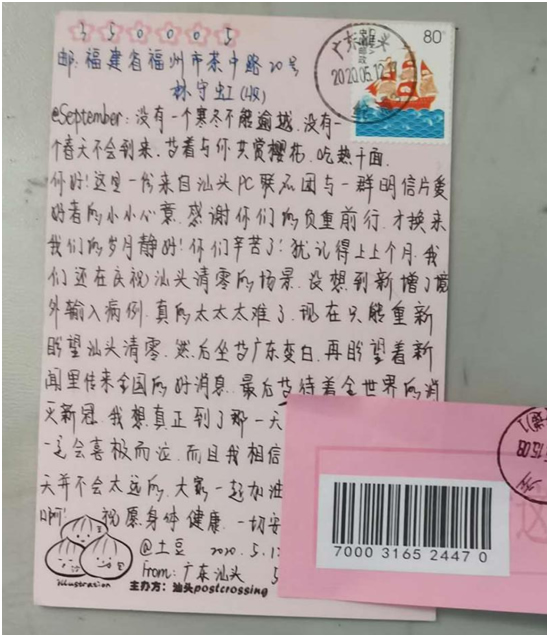 350005
80分
中国邮政
CHINA
邮:福建省福州市茶中路20号
林守虹(收)
2020.05.12
@September:没有一个寒冬不能逾越,没有一
个春天不会到来,若着与你共赏樱花,吃热干面.
你好!这是一份来自汕头PC联名团与一群明信片爱
好者的小小心意,感谢你们的负重前行,才换来
我们的岁月静好!你们辛苦了!犹记得上上个月,我
们还在庆祝汕头清零的场景,没想到新增了境
外输入病例,真的太太太难了,现在只能重新
盼望汕头清零,然后坐等广东变白,再盼望着新
闻里传来全国的好消息,最后等待着全世界的消
灭新冠,我想真正到了那一天
一定会喜极而泣,而且我相信
天并不会太远的,大家一起加油
啊!祝愿身体健康,一切安
@土豆 2020.5.1
from:广东汕头
illustration
主办方:汕头postcrossing
7000 3165 2447 0
15.08